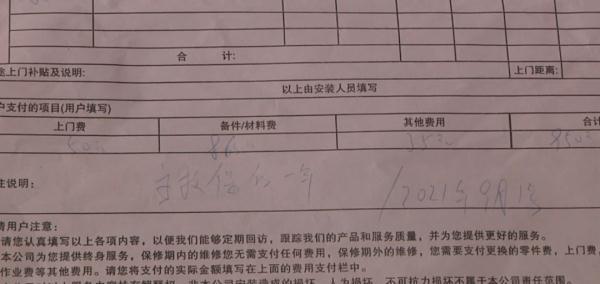 合 计:
途上门补贴及说明: 上门距离:
以上由安装人员填写
户支付的项目(用户填写)
上门费 备件/材料费 其他费用 合计
50元 850元
注说明: 保 一年 /2021年9月1号
请用户注意:
请您认真填写以上各项内容，以便我们能够定期回访，跟踪我们的产品和服务质量，并为您提供更好的服务。
本公司为您提供终身服务，保修期内的维修您无需支付任何费用，保修期外的维修，您需要支付更换的零件费，上门费，
作业费等其他费用。请您将支付的实际金额填写在上面的费用支付栏中。
非本公司安装造成的损坏，人为损坏，不可抗力损坏不属于本公司责任范围。